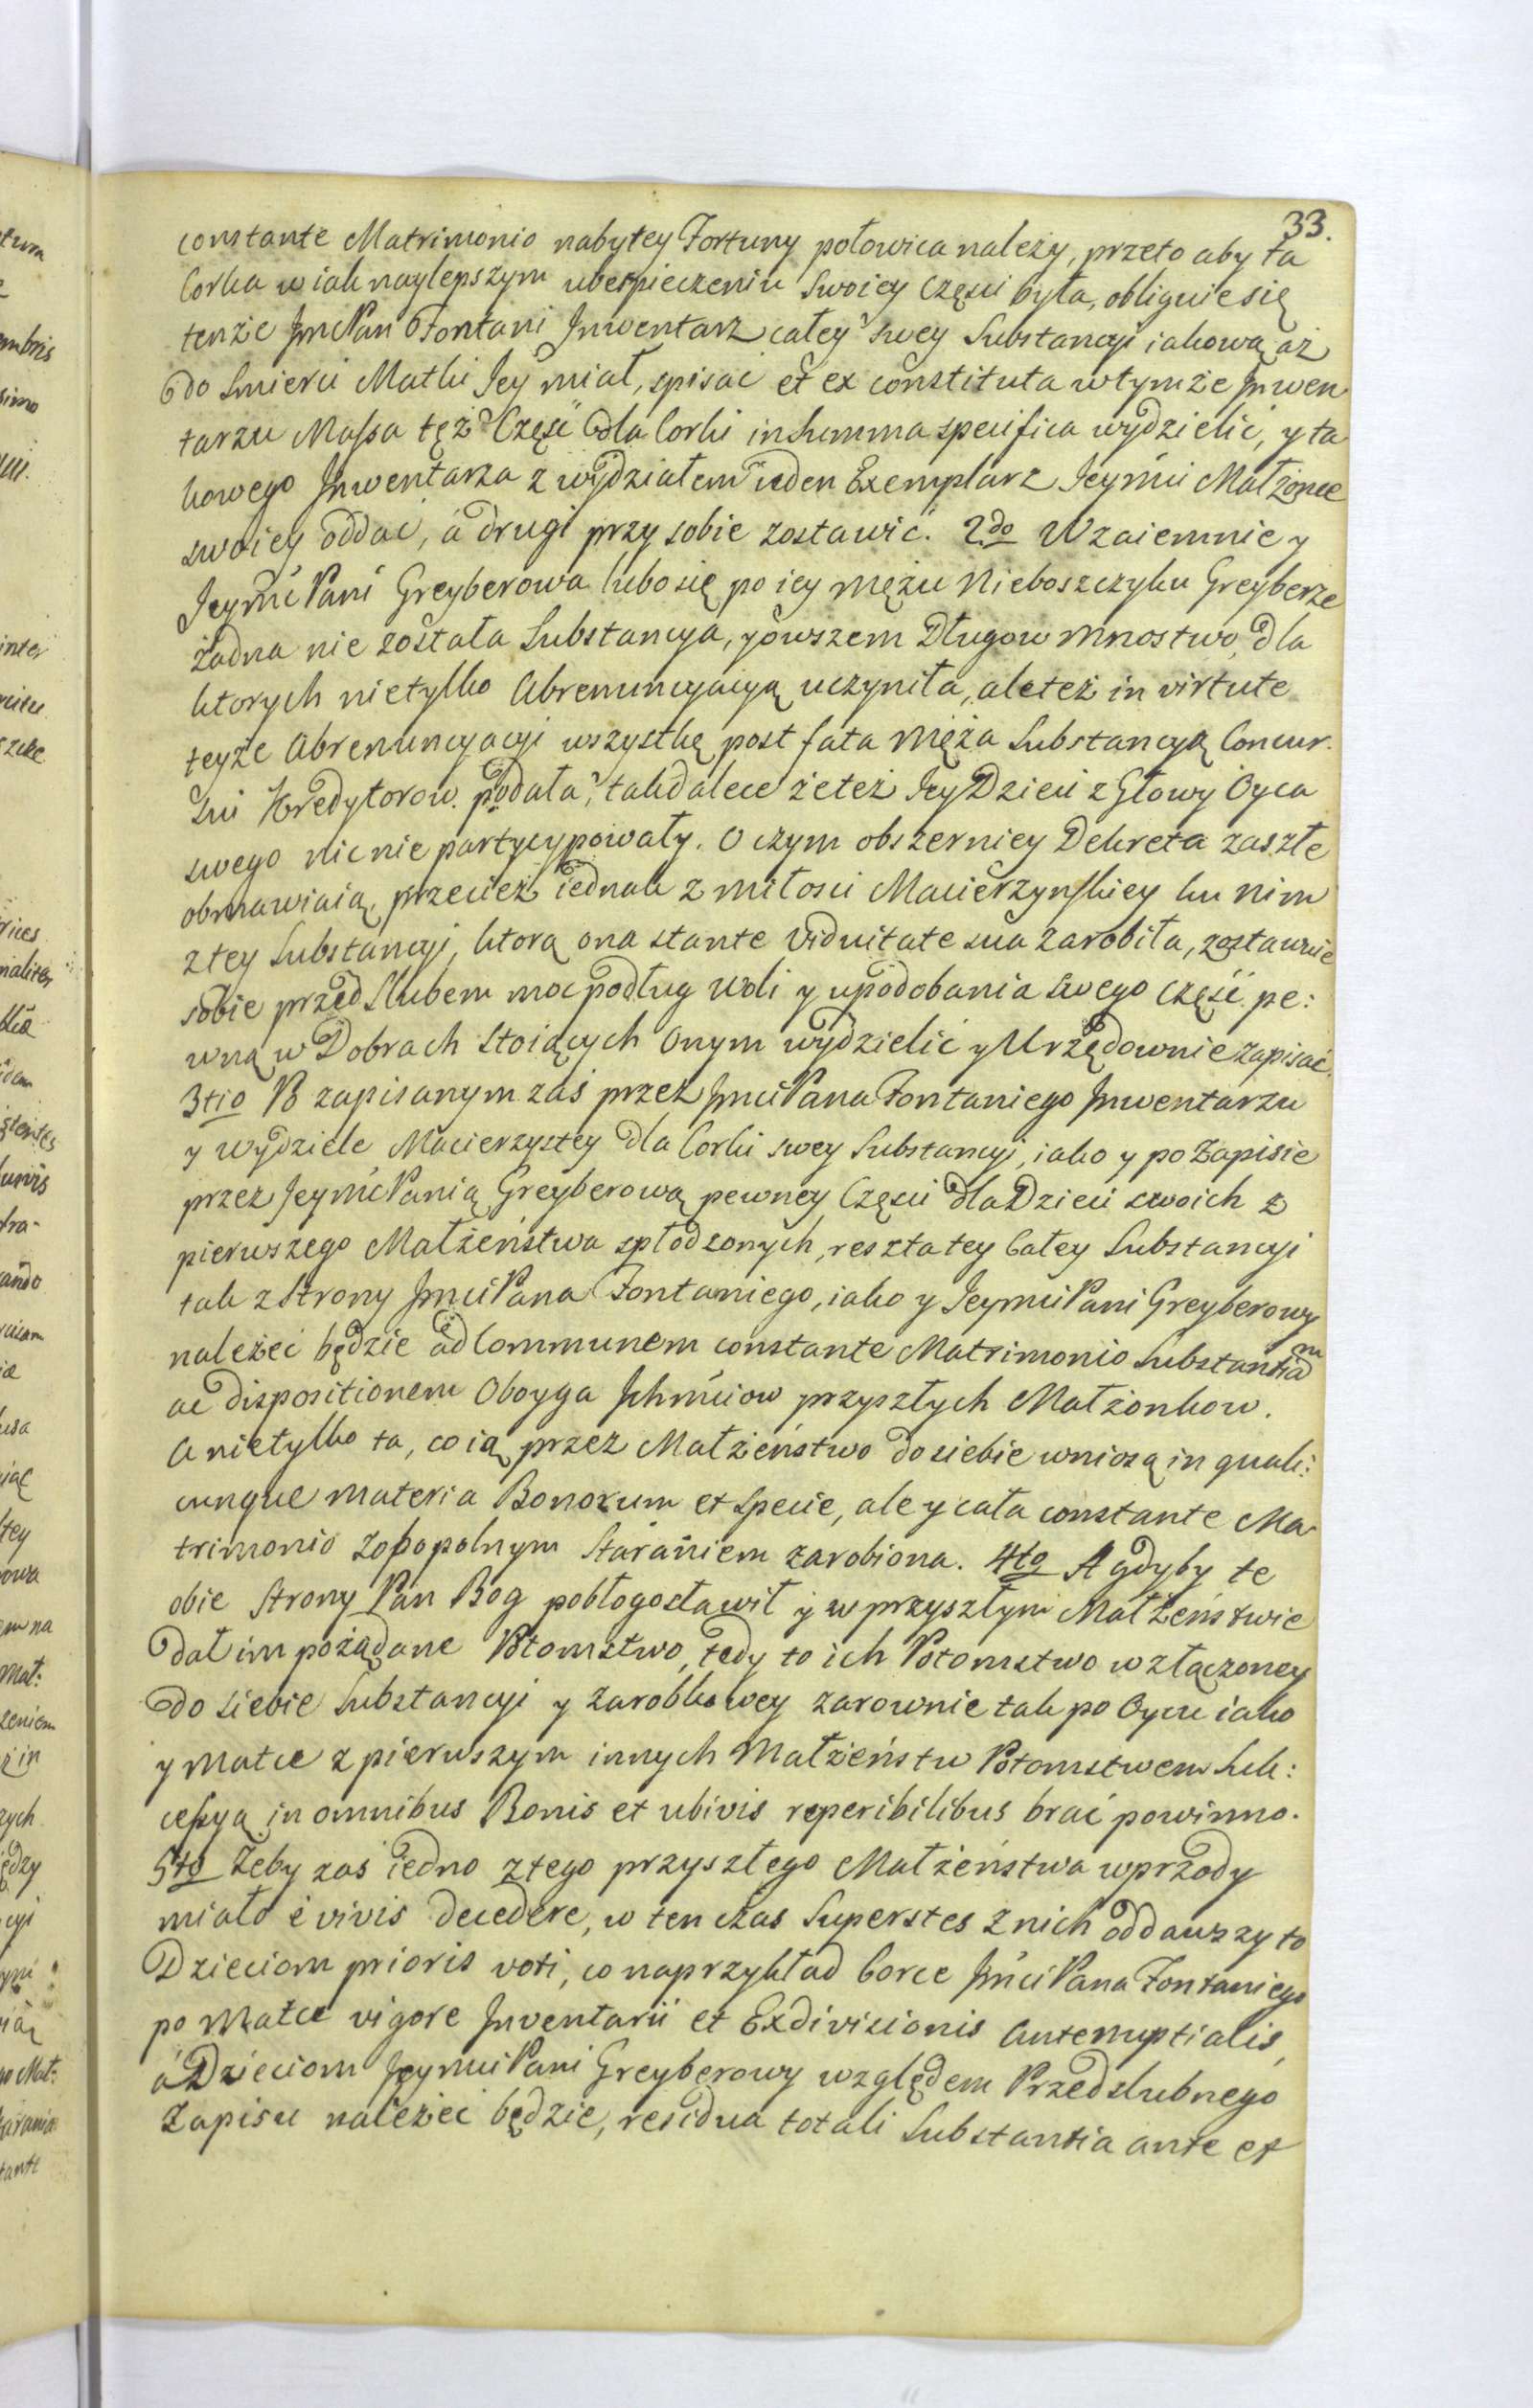 33.
constante Matrimonio nabytey Fortuny połowica należy, przeto aby ta
Corka w iak naylepszym ubespieczeniu Swoiey Częsci była, obliguie się
tenże Jmc Pan Fontani Jnwentarz całey swey Substancyi iakową aż
do Smierci Matki Jey miał, spisać et ex constituta w tymże Jnwen
tarzu Massa tęż Część dla Corki in Summa specifica wydzielić, y ta
kowego Jnwentarza z wydziałem ieden Exemplarz Jeymći Małżonce
swoiey oddać, á drugi przy sobie zostawić. 2do Wzaiemnie y
Jeymć Pani Greyberowa lubo się po iey mężu Nieboszczyku Greyberze
żadna nie została Substancya, y owszem Długow mnostwo, dla
ktorych nie tylko Abrenuncyacyą uczyniła, ale też in virtute
teyże Abrenuncyacyi wszystkę post fata Męża Substancyą Concur-
sui Kredytorow podała, tak dalece że też Jey Dzieci z Głowy Oyca
swego nic nie partycypowały. O czym obszerniey Dekreta zaszłe
obmawiaią, przecież iednak z miłosci Macierzynskiey ku nim
z tey Substancyi, ktorą ona stante Viduitate sua zarobiła, zostawuie
sobie przed Slubem moc podług woli y upodobania swego część pe:
wną w Dobrach Stoiących Onym wydzielić y Urzędownie zapisać.
3tio W zapisanym zaś przez Jmci Pana Fontaniego Jnwentarzu
y wydziele Macierzystey dla Corki swey Substancyi, iako y po Zapisie
przez Jeymć Panią Greyberową pewney Częsci dla Dzieci swoich z
pierwszego Małżeństwa spłodzonych, reszta tey Całey Substancyi
tak z Strony Jmci Pana Fontaniego, iako y Jeymci Pani Greyberowy
należeć będzie ad Communem constante Matrimonio Substantiam
ac dispositionem Oboyga Jchmciow przyszłych Małżonkow.
A nie tylko ta, co ią przez Małżeństwo do siebie wniosą in quali:
cunque materia Bonorum et Specie, ale y cała constante Ma-
trimonio Zobopolnym Staraniem zarobiona. 4to A gdyby te
obie Strony Pan Bog pobłogosławił y w przyszłym Małżeństwie
dał im pożądane Potomstwo, tedy to ich Potomstwo w złączoney
do siebie Substancyi y Zarobkowey zarownie tak po Oycu iako
y Matce z pierwszym innych Małżeństw Potomstwem Suk:
cessyą in omnibus Bonis et ubivis reperibilibus brać powinno.
5to Żeby zaś iedno z tego przyszłego Małżeństwa wprzody
miało è vivis decedere, w ten czas Superstes z nich oddawszy to
Dzieciom prioris voti, co naprzykład Corce Jmći Pana Fontaniego
po Matce vigore Jnventarii et Exdivisionis Antenuptialis,
á Dzieciom Jeymci Pani Greyberowy względem Przedslubnego
Zapisu należeć będzie, residua totali Substantia ante et